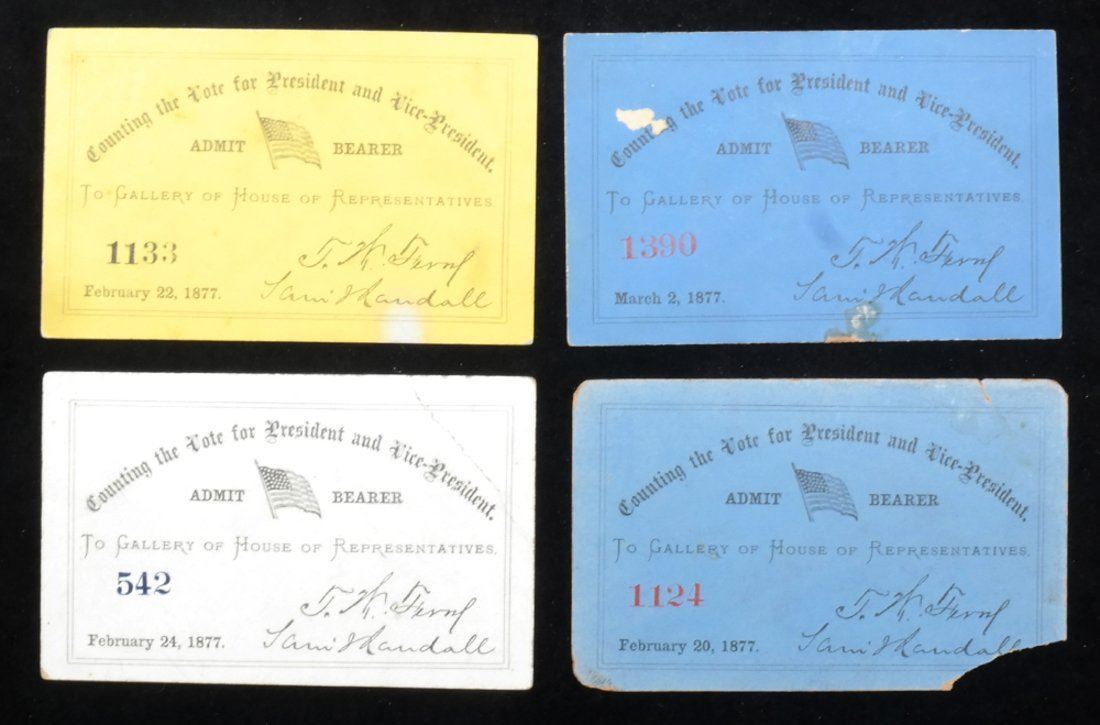 Counting the Vote for President and Vice-President.
ADMIT BEARER
To Gallery of House of Representatives.
1133
T. W. Ferry
February 22, 1877.
Sam J Randall
Counting the Vote for President and Vice-President.
ADMIT BEARER
To Gallery of House of Representatives.
1390
T. W. Ferry
March 2, 1877.
Sam J Randall
Counting the Vote for President and Vice-President.
ADMIT BEARER
To Gallery of House of Representatives.
542
T. W. Ferry
February 24, 1877.
Sam J Randall
Counting the Vote for President and Vice-President.
ADMIT BEARER
To Gallery of House of Representatives.
1124
T. W. Ferry
February 20, 1877.
Sam J Randall